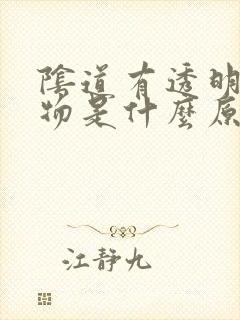 陰道有透明
物是什麼原
江静九